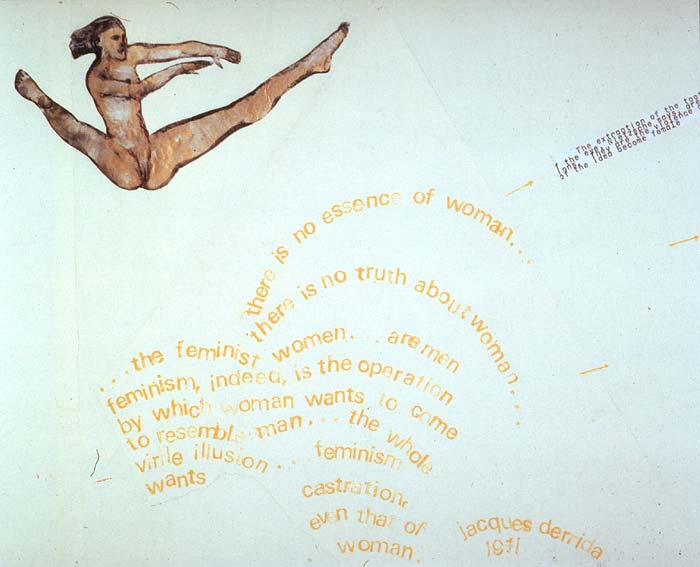 The extraction of the
there is no essence of woman...
there is no truth about woman...
...the feminist women... are men
feminism, indeed, is the operation
by which woman wants to come
to resemble man... the whole
virile illusion... feminism
wants
castration,
even that of
woman.
jacques derrida
1971